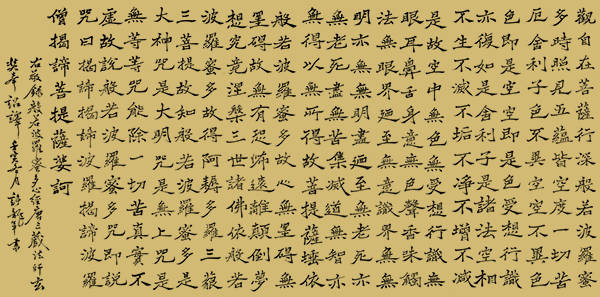 觀自在菩薩行深般若波羅蜜
多時照見五蘊皆空度一切苦
厄舍利子色不異空空不異色
色即是空空即是色受想行識
亦復如是舍利子是諸法空相
不生不滅不垢不淨不增不減
是故空中無色無受想行識無
眼耳鼻舌身意無色聲香味觸
法無眼界迺至無意識界無無
明亦無無明盡迺至無老死亦
無老死盡無苦集滅道無智亦
無得以無所得故菩提薩埵依
般若波羅蜜多故心無罣礙無
罣礙故無有恐怖遠離顛倒夢
想究竟涅槃三世諸佛依般若
波羅蜜多故得阿耨多羅三藐
三菩提故知般若波羅蜜多是
大神咒是大明咒是無上咒是
無等等咒能除一切苦真實不
虛故說般若波羅蜜多咒即說
咒曰揭諦揭諦波羅揭諦波羅
僧揭諦菩提薩婆訶
右敬錄般若波羅蜜多心經唐三藏法師玄
奘奉詔譯 壬寅 月 書